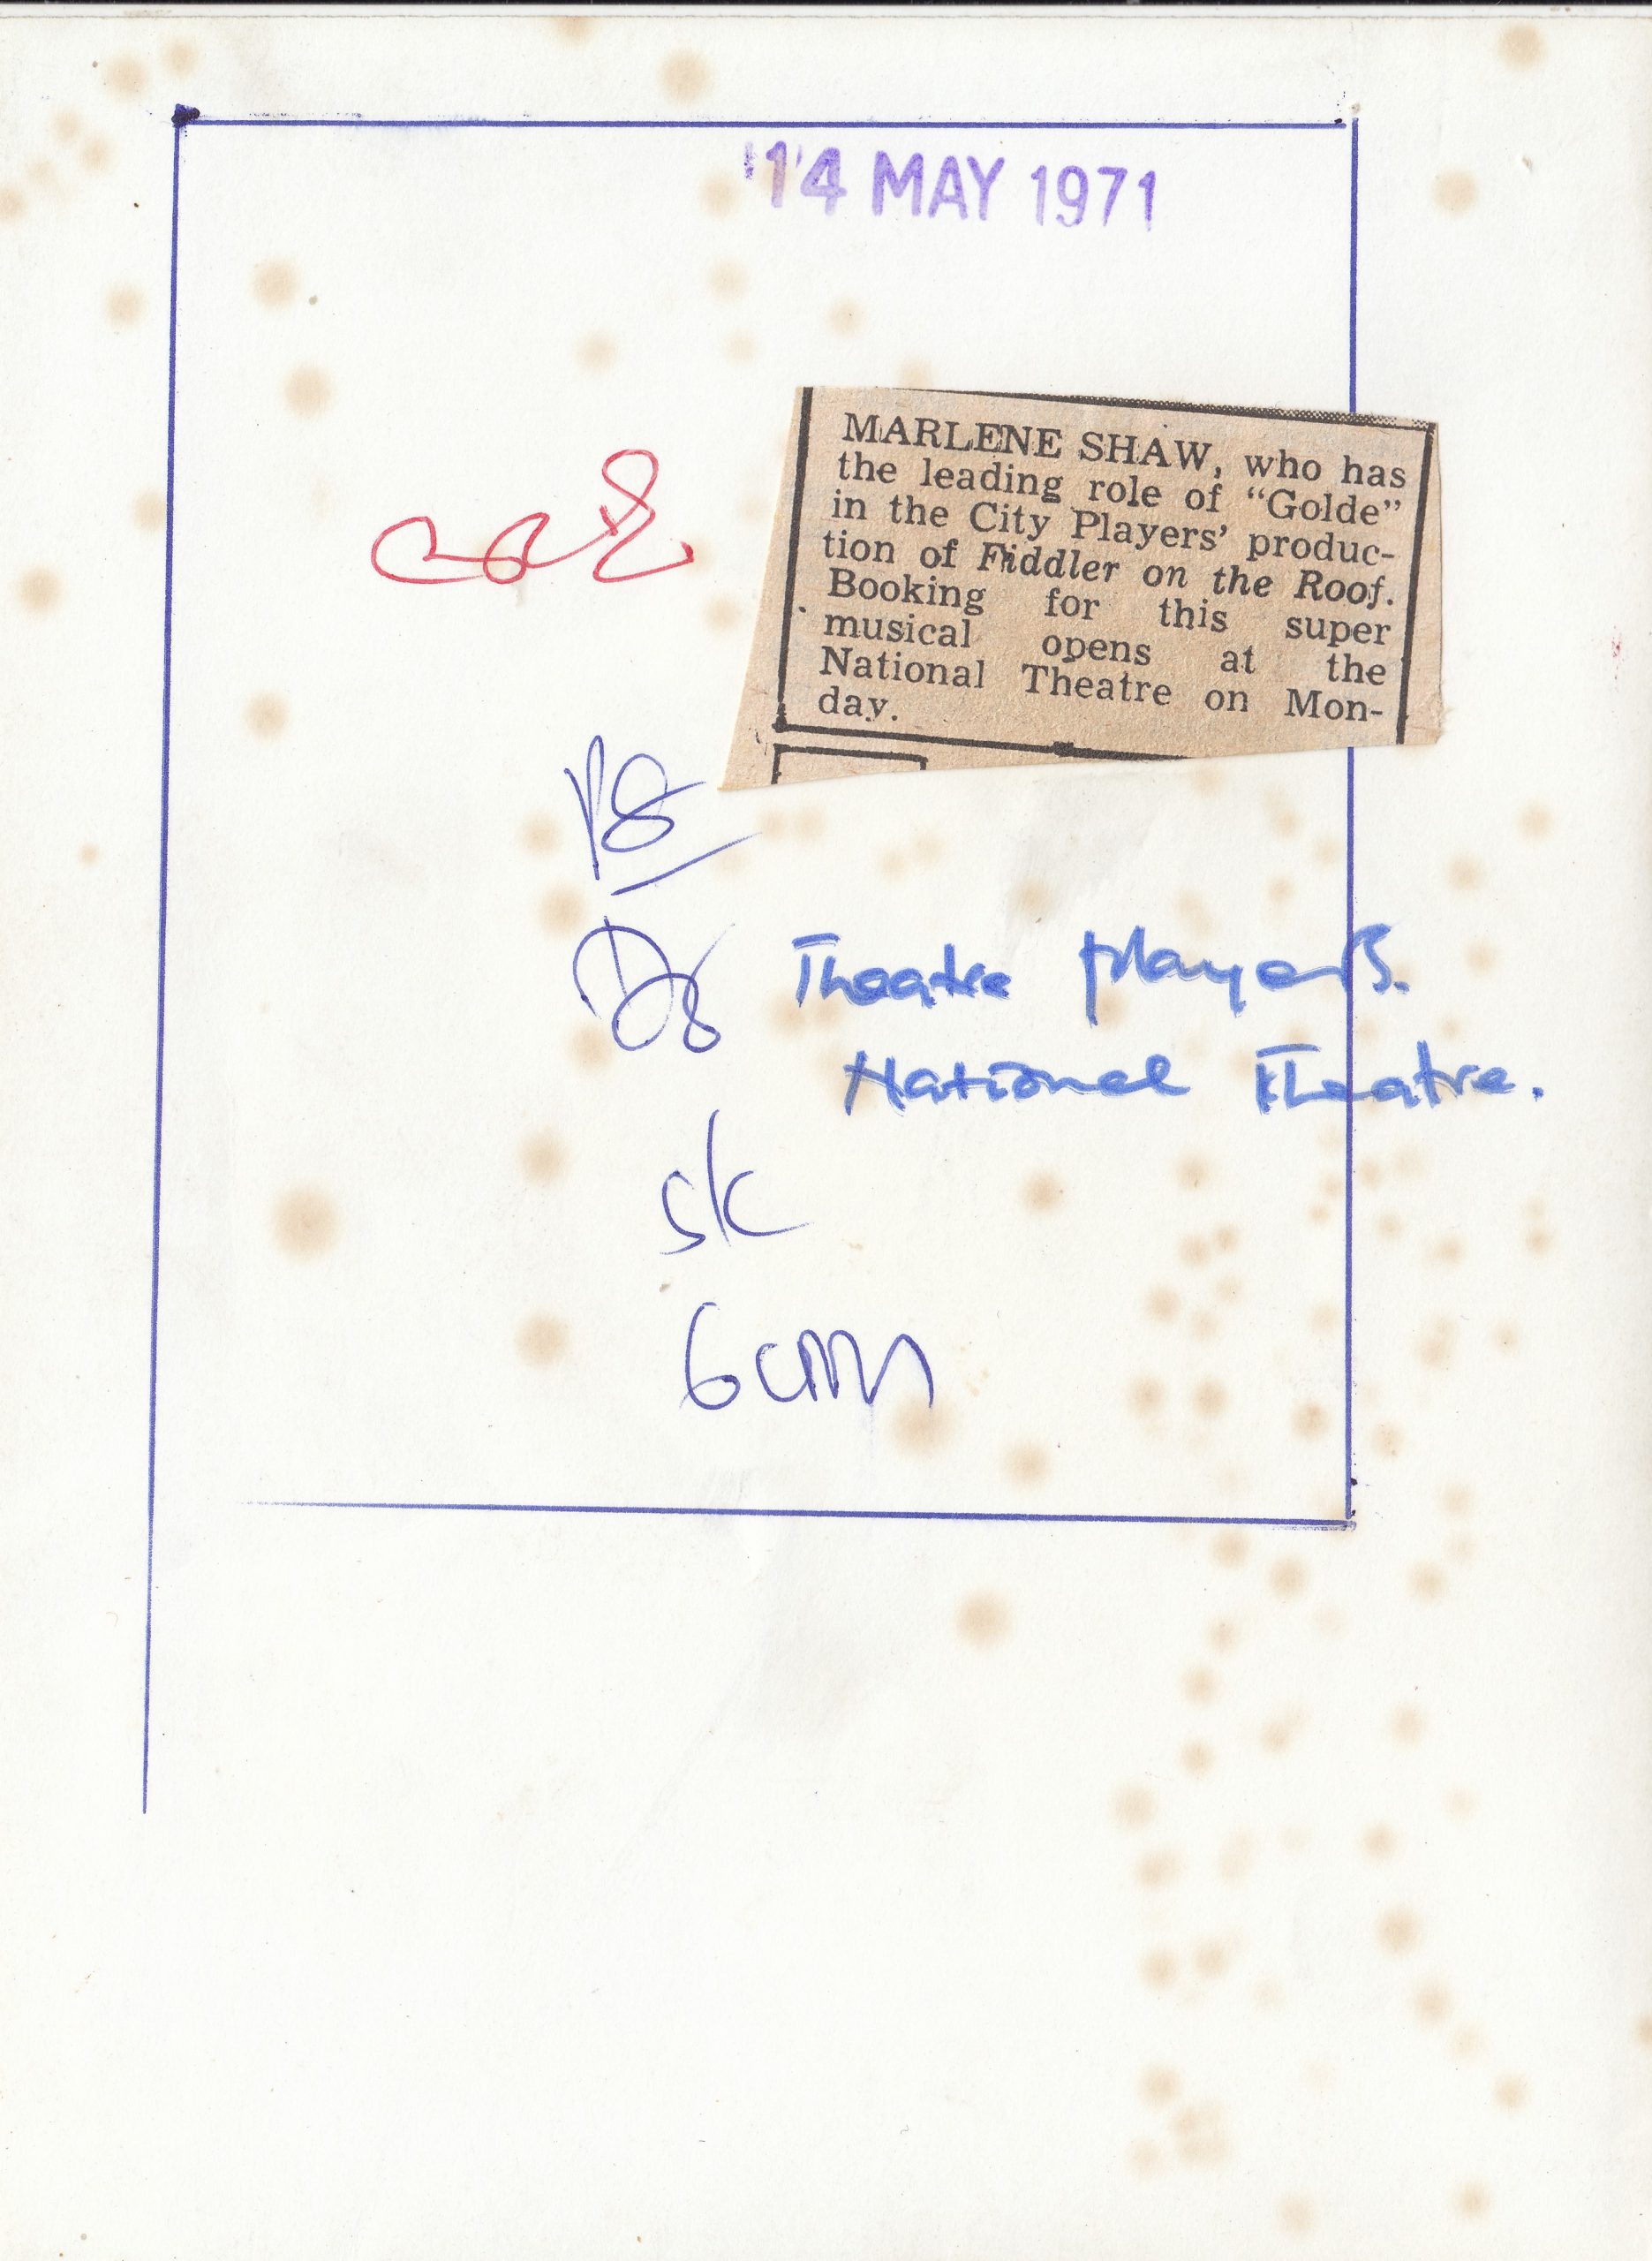 14 MAY 1971
MARLENE SHAW, who has
the leading role of “Golde”
in the City Players’ produc-
tion of Fiddler on the Roof.
Booking for this super
musical opens at the
National Theatre on Mon-
day.
Theatre players.
National Theatre.
S/C
6 cm